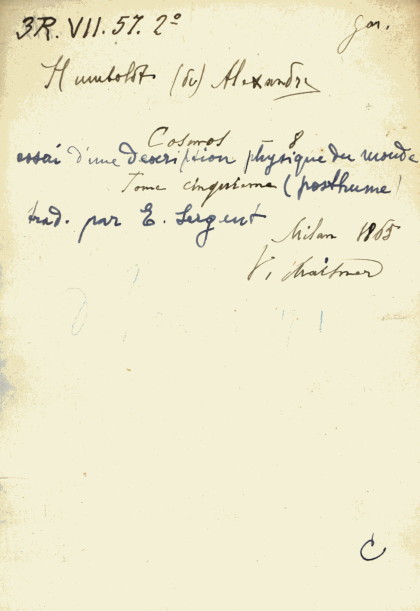 3R. VII. 57. 2º
Humboldt (de) Alexandre
Cosmos — 8
essai d'une description physique du monde
Tome cinquième (posthume)
trad. par E. Sergent
Milan 1865
V.
C